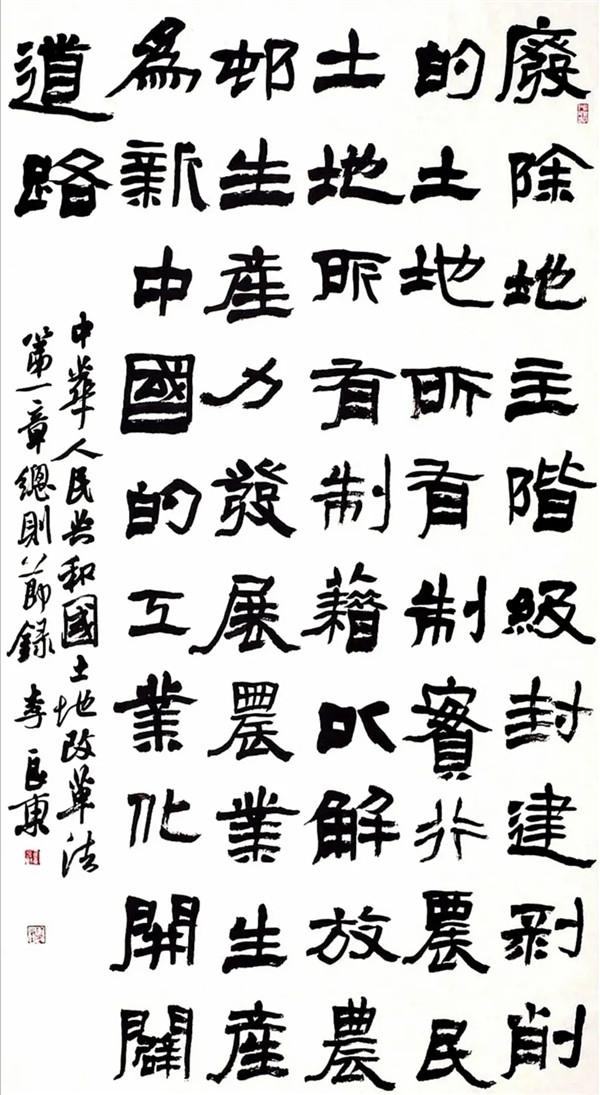 廢除地主階級封建剥削
的土地所有制實行農民
土地所有制藉以解放農
邨生産力發展農業生産
爲新中國的工業化開闢
道路
中華人民共和國土地改革法
第一章總則節錄 李良東